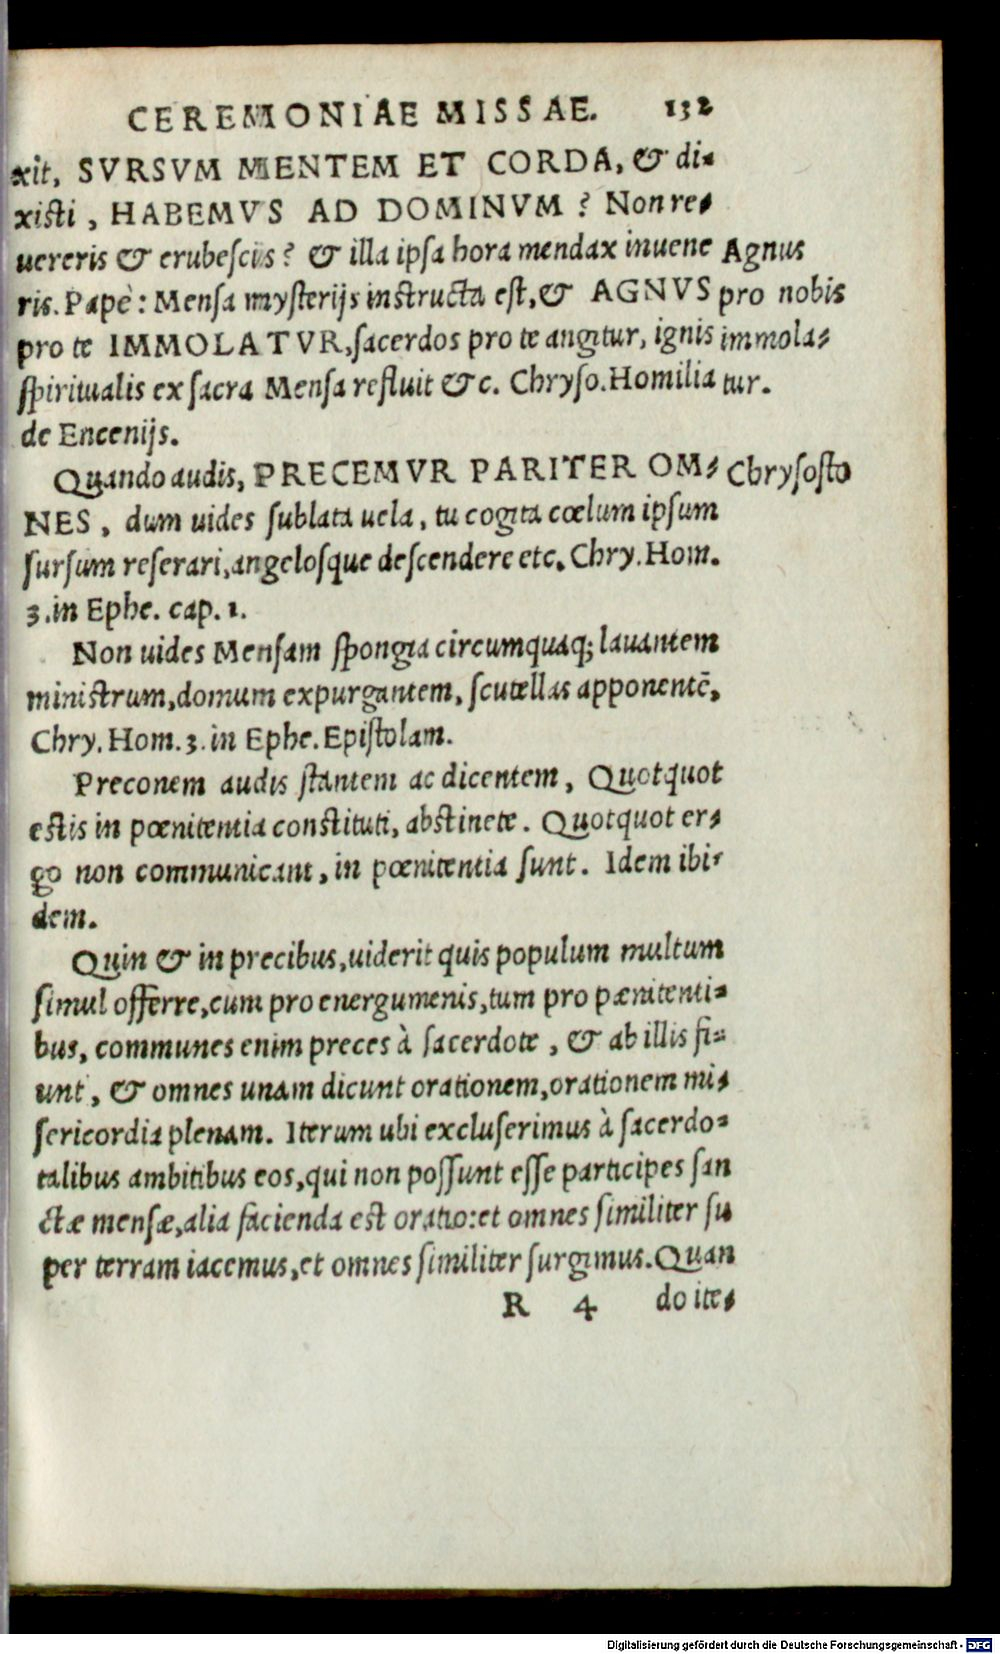 CEREMONIAE MISSAE. 132
xit, SVRSVM MENTEM ET CORDA, & di-
xisti, HABEMVS AD DOMINVM? Non re-
uereris & erubescis? & illa ipsa hora mendax inuene
ris. Papè: Mensa mysterijs instructa est, & AGNVS
pro te IMMOLATVR, sacerdos pro te angitur, ignis
spiritualis ex sacra Mensa refluit &c. Chryso. Homilia
de Encenijs.
Agnus
pro nobis
immola-
tur.
Quando audis, PRECEMVR PARITER OM-
NES, dum uides sublata uela, tu cogita cœlum ipsum
sursum reserari, angelosque descendere etc. Chry. Hom.
3. in Ephe. cap. 1.
Chrysosto
Non uides Mensam spongia circumquaq; lauantem
ministrum, domum expurgantem, scutellas apponentē,
Chry. Hom. 3. in Ephe. Epistolam.
Preconem audis stantem ac dicentem, Quotquot
estis in pœnitentia constituti, abstinete. Quotquot er-
go non communicant, in pœnitentia sunt. Idem ibi-
dem.
Quin & in precibus, uiderit quis populum multum
simul offerre, cum pro energumenis, tum pro pænitenti-
bus, communes enim preces à sacerdote, & ab illis fi-
unt, & omnes unam dicunt orationem, orationem mi-
sericordia plenam. Iterum ubi excluserimus à sacerdo-
talibus ambitibus eos, qui non possunt esse participes san
ctæ mensæ, alia facienda est oratio: et omnes similiter su
per terram iacemus, et omnes similiter surgimus. Quan
R 4 do ite-
Digitalisierung gefördert durch die Deutsche Forschungsgemeinschaft - DFG